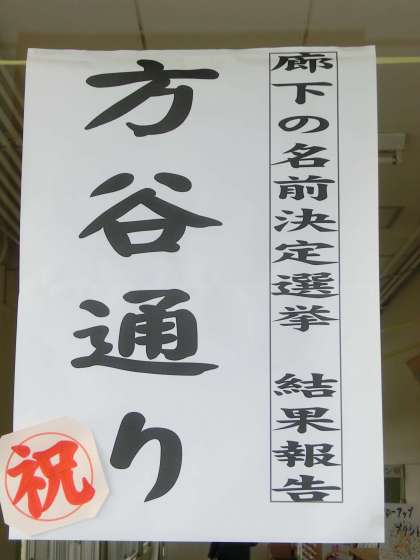 廊下の名前決定選挙 結果報告
方谷通り
祝